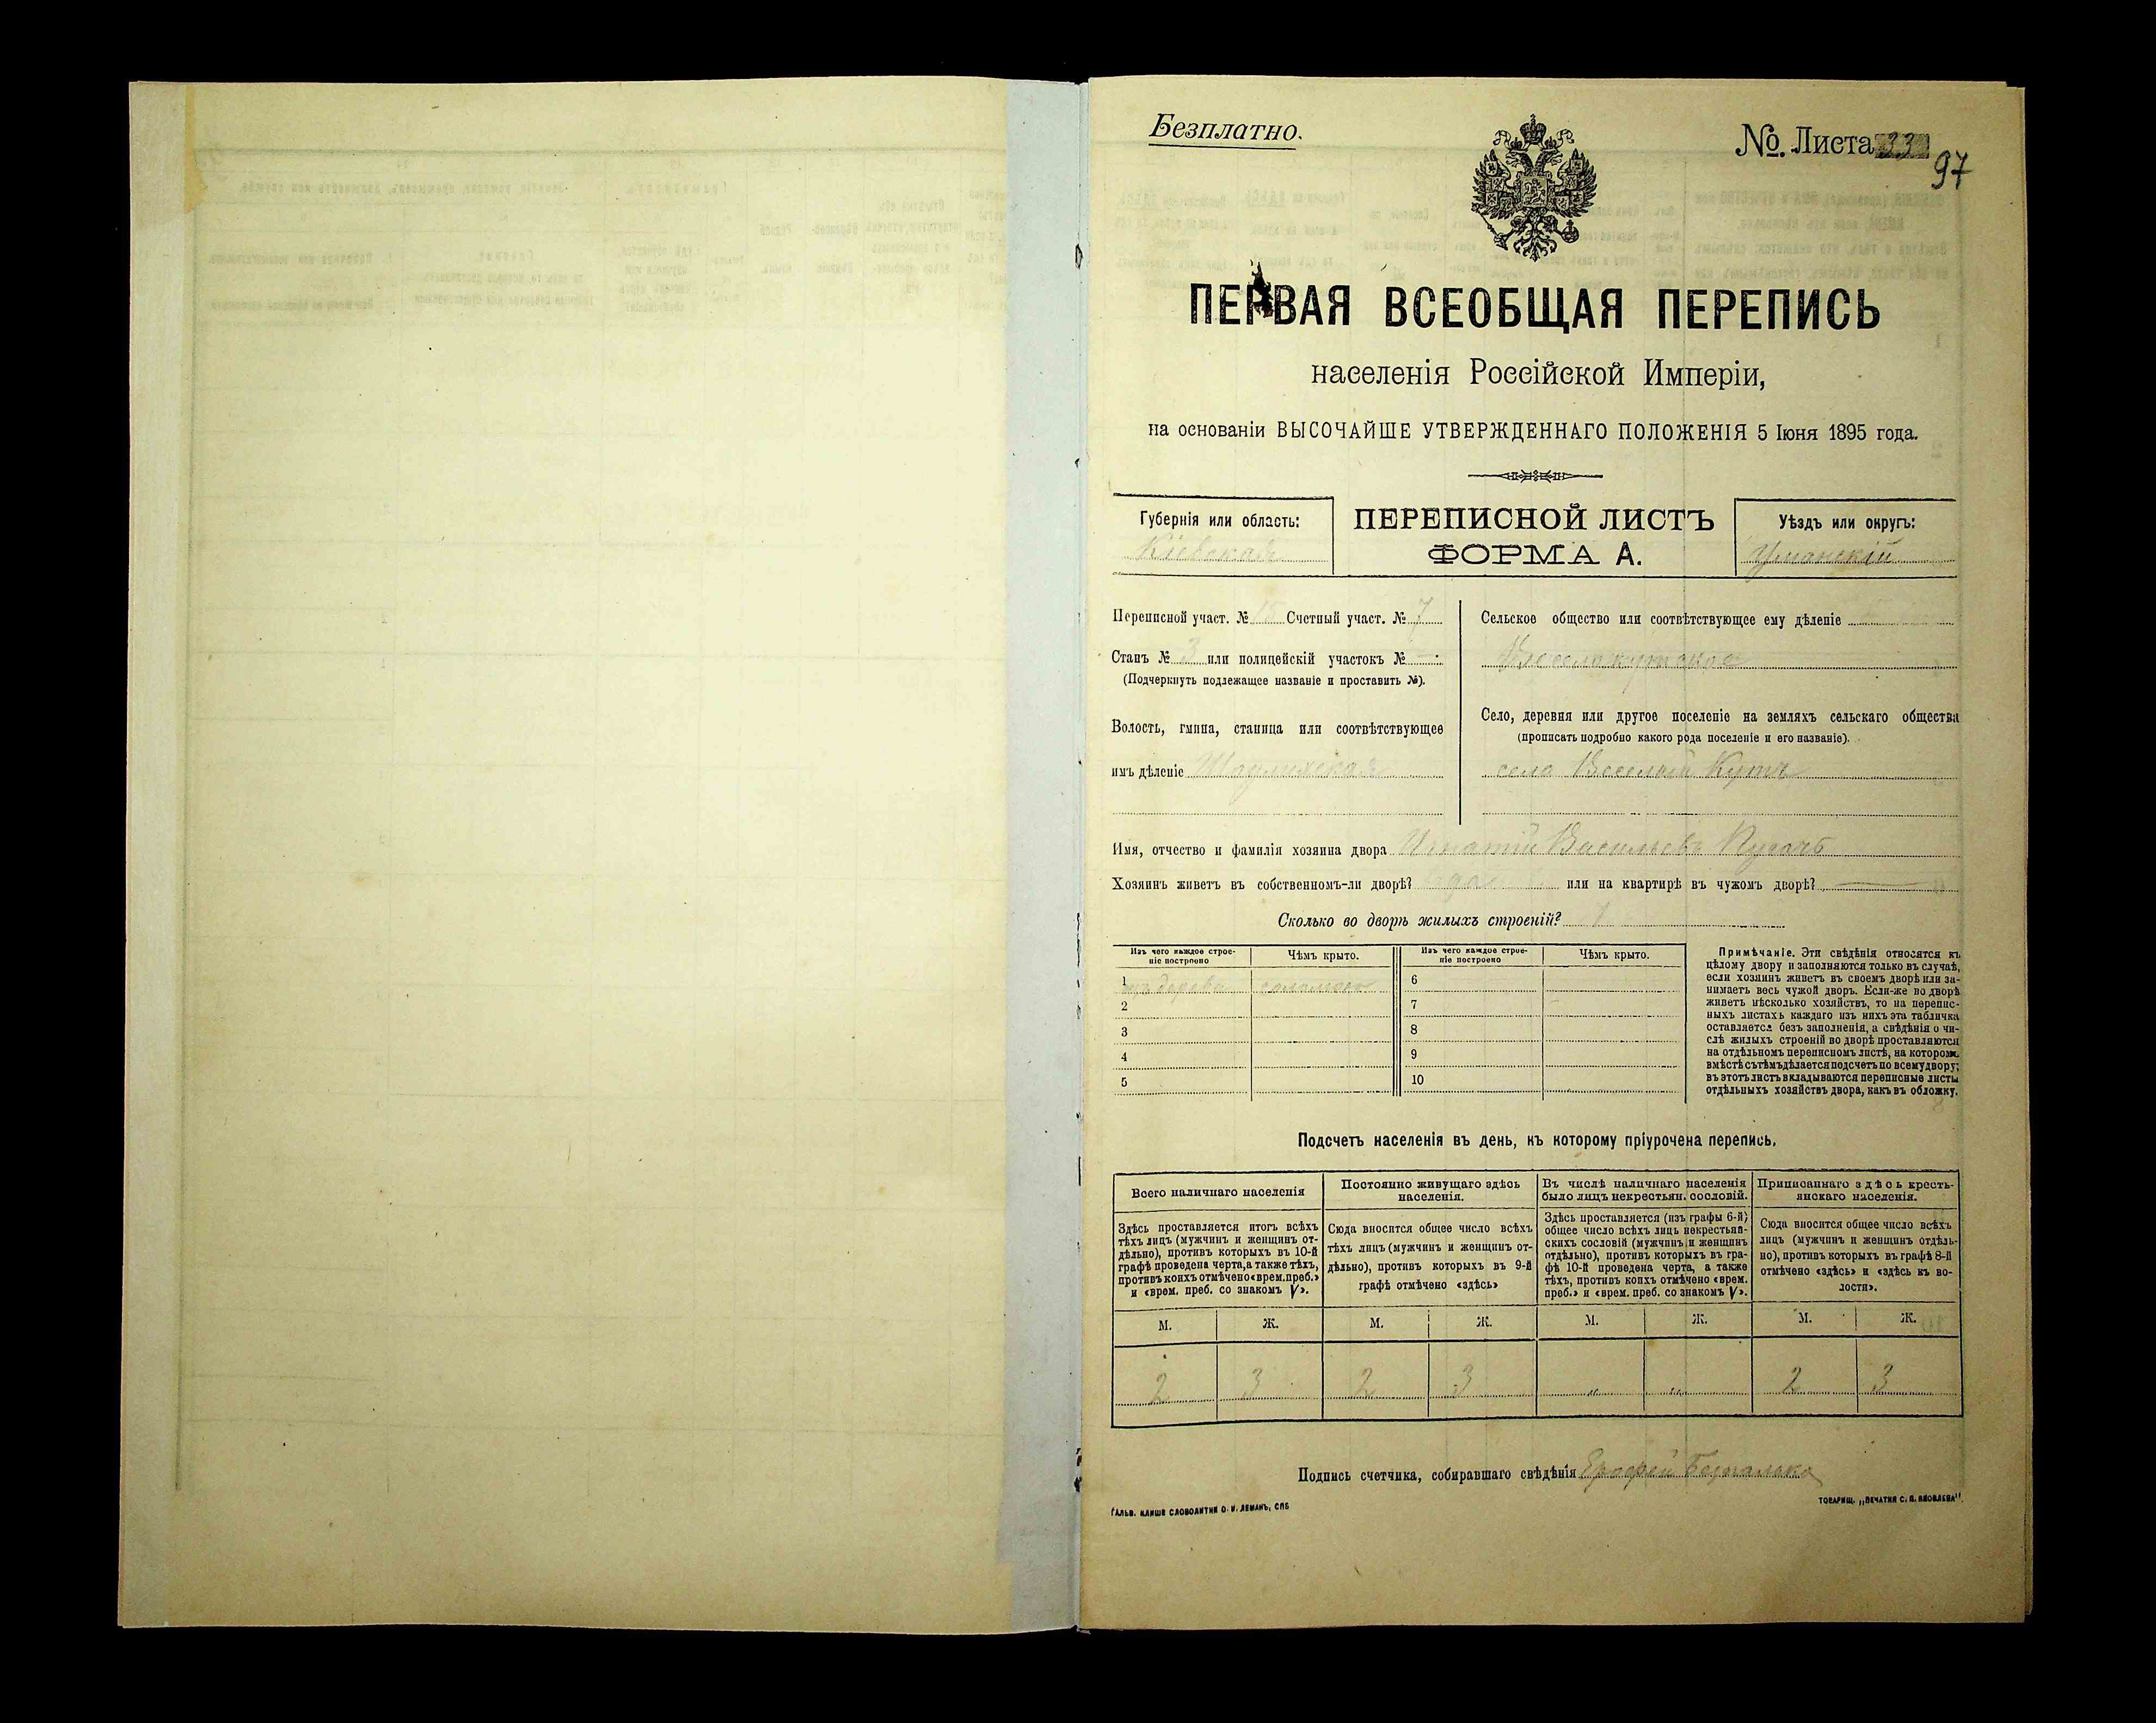 Безплатно.
№ Листа 33
97
ПЕРВАЯ ВСЕОБЩАЯ ПЕРЕПИСЬ
населенія Россійской Имперіи,
на основаніи ВЫСОЧАЙШЕ УТВЕРЖДЕННАГО ПОЛОЖЕНІЯ 5 Іюня 1895 года.
Губернія или область:
Кіевская
ПЕРЕПИСНОЙ ЛИСТЪ
ФОРМА А.
Уѣздъ или округъ:
Уманскій
Переписной участ. № Счетный участ. № 7
Станъ № 3 или полицейскій участокъ № —
(Подчеркнуть подлежащее названіе и проставить №).
Волость, гмина, станица или соотвѣтствующее
имъ дѣленіе
Сельское общество или соотвѣтствующее ему дѣленіе
Веселокутское
Село, деревня или другое поселеніе на земляхъ сельскаго общества
(прописать подробно какого рода поселеніе и его названіе).
село Веселый Кутъ
Имя, отчество и фамилія хозяина двора Игнатій Васильевъ
Хозяинъ живетъ въ собственномъ-ли дворѣ? да или на квартирѣ въ чужомъ дворѣ? —
Сколько во дворѣ жилыхъ строеній? 1
Изъ чего каждое строе-
ніе построено
Чѣмъ крыто.
Изъ чего каждое строе-
ніе построено
Чѣмъ крыто.
1 изъ дерева соломою
2
3
4
5
6
7
8
9
10
Примѣчаніе. Эти свѣдѣнія относятся къ
цѣлому двору и заполняются только въ случаѣ,
если хозяинъ живетъ въ своемъ дворѣ или за-
нимаетъ весь чужой дворъ. Если-же во дворѣ
живетъ нѣсколько хозяйствъ, то на перепис-
ныхъ листахъ каждаго изъ нихъ эта табличка
оставляется безъ заполненія, а свѣдѣнія о чи-
слѣ жилыхъ строеній во дворѣ проставляются
на отдѣльномъ переписномъ листѣ, на которомъ
вмѣстѣ съ тѣмъ дѣлается подсчетъ по всему двору;
въ этотъ листъ вкладываются переписные листы
отдѣльныхъ хозяйствъ двора, какъ въ обложку.
Подсчетъ населенія въ день, къ которому пріурочена перепись.
Всего наличнаго населенія
Здѣсь проставляется итогъ всѣхъ
тѣхъ лицъ (мужчинъ и женщинъ от-
дѣльно), противъ которыхъ въ 10-й
графѣ проведена черта, а также тѣхъ,
противъ коихъ отмѣчено «врем. преб.»
и «врем. преб. со знакомъ V».
Постоянно живущаго здѣсь
населенія.
Сюда вносится общее число всѣхъ
тѣхъ лицъ (мужчинъ и женщинъ от-
дѣльно), противъ которыхъ въ 9-й
графѣ отмѣчено «здѣсь»
Въ числѣ наличнаго населенія
было лицъ некрестьян. сословій.
Здѣсь проставляется (изъ графы 6-й)
общее число всѣхъ лицъ некрестьян-
скихъ сословій (мужчинъ и женщинъ
отдѣльно), противъ которыхъ въ гра-
фѣ 10-й проведена черта, а также
тѣхъ, противъ коихъ отмѣчено «врем.
преб.» и «врем. преб. со знакомъ V».
Приписаннаго здѣсь кресть-
янскаго населенія.
Сюда вносится общее число всѣхъ
лицъ (мужчинъ и женщинъ отдѣль-
но), противъ которыхъ въ графѣ 8-й
отмѣчено «здѣсь» и «здѣсь къ во-
лости».
М. Ж. М. Ж. М. Ж. М. Ж.
2 3 2 3 „ „ 2 3
Подпись счетчика, собиравшаго свѣдѣнія Ерофей
ГАЛЬВ. КЛИШЕ СЛОВОЛИТНИ О. И. ЛЕМАНЪ, СПБ
ТОВАРИЩ. „ПЕЧАТНЯ С. П. ЯКОВЛЕВА".